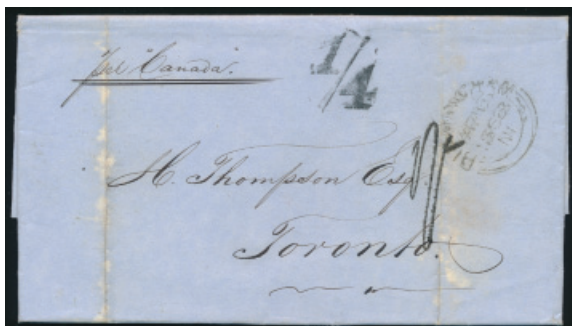 per "Canada".
1/4
H. Thompson Esq.
Toronto.